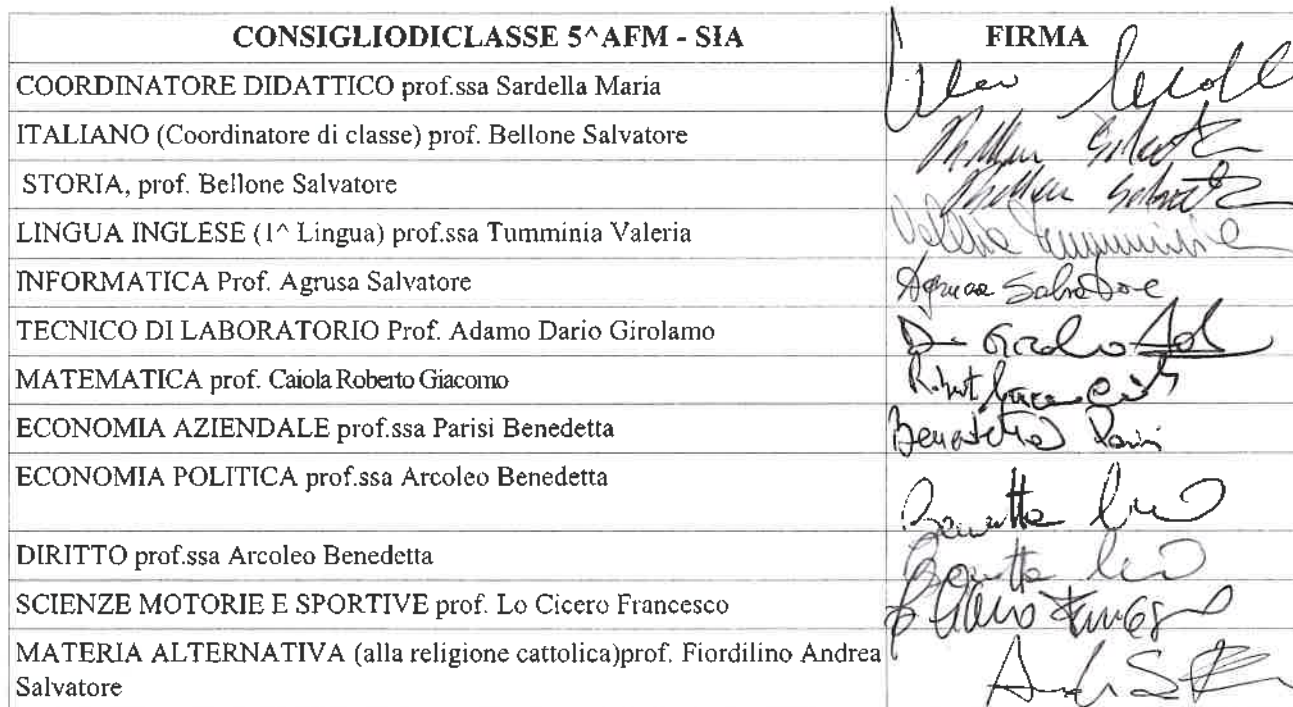 CONSIGLIODICLASSE 5^AFM - SIA FIRMA
COORDINATORE DIDATTICO prof.ssa Sardella Maria
ITALIANO (Coordinatore di classe) prof. Bellone Salvatore
STORIA, prof. Bellone Salvatore
LINGUA INGLESE (1^ Lingua) prof.ssa Tumminia Valeria Valeria Tumminia
INFORMATICA Prof. Agrusa Salvatore Agrusa Salvatore
TECNICO DI LABORATORIO Prof. Adamo Dario Girolamo
MATEMATICA prof. Caiola Roberto Giacomo
ECONOMIA AZIENDALE prof.ssa Parisi Benedetta Benedetta Parisi
ECONOMIA POLITICA prof.ssa Arcoleo Benedetta
DIRITTO prof.ssa Arcoleo Benedetta
SCIENZE MOTORIE E SPORTIVE prof. Lo Cicero Francesco
MATERIA ALTERNATIVA (alla religione cattolica)prof. Fiordilino Andrea
Salvatore